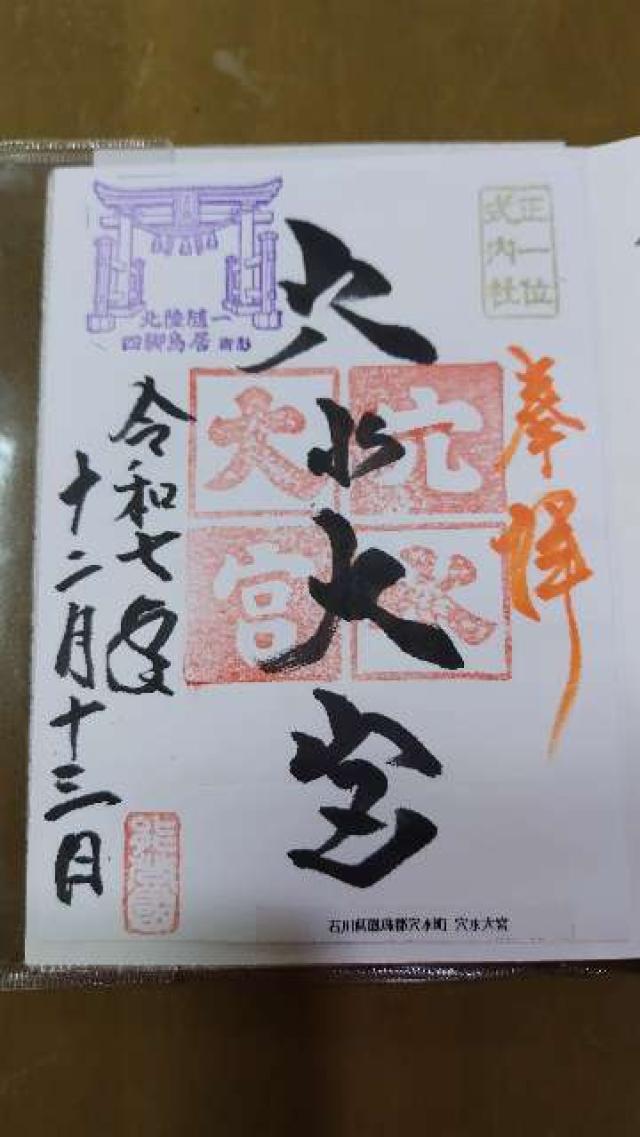 正一位
式内社
奉拝
穴水大宮
穴水
大宮
北陸随一
四脚鳥居
令和七年
十二月十三日
石川県鳳珠郡穴水町 穴水大宮